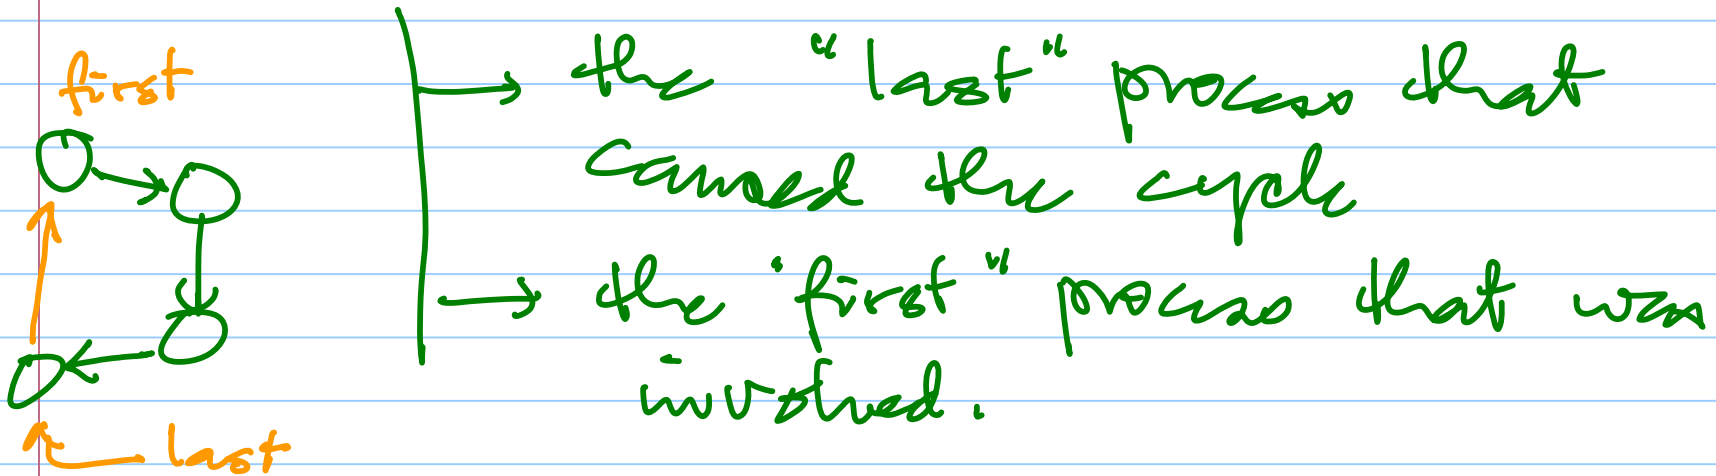 first
→ the "last" process that
caused the cycle
→ the "first" process that was
involved.
last